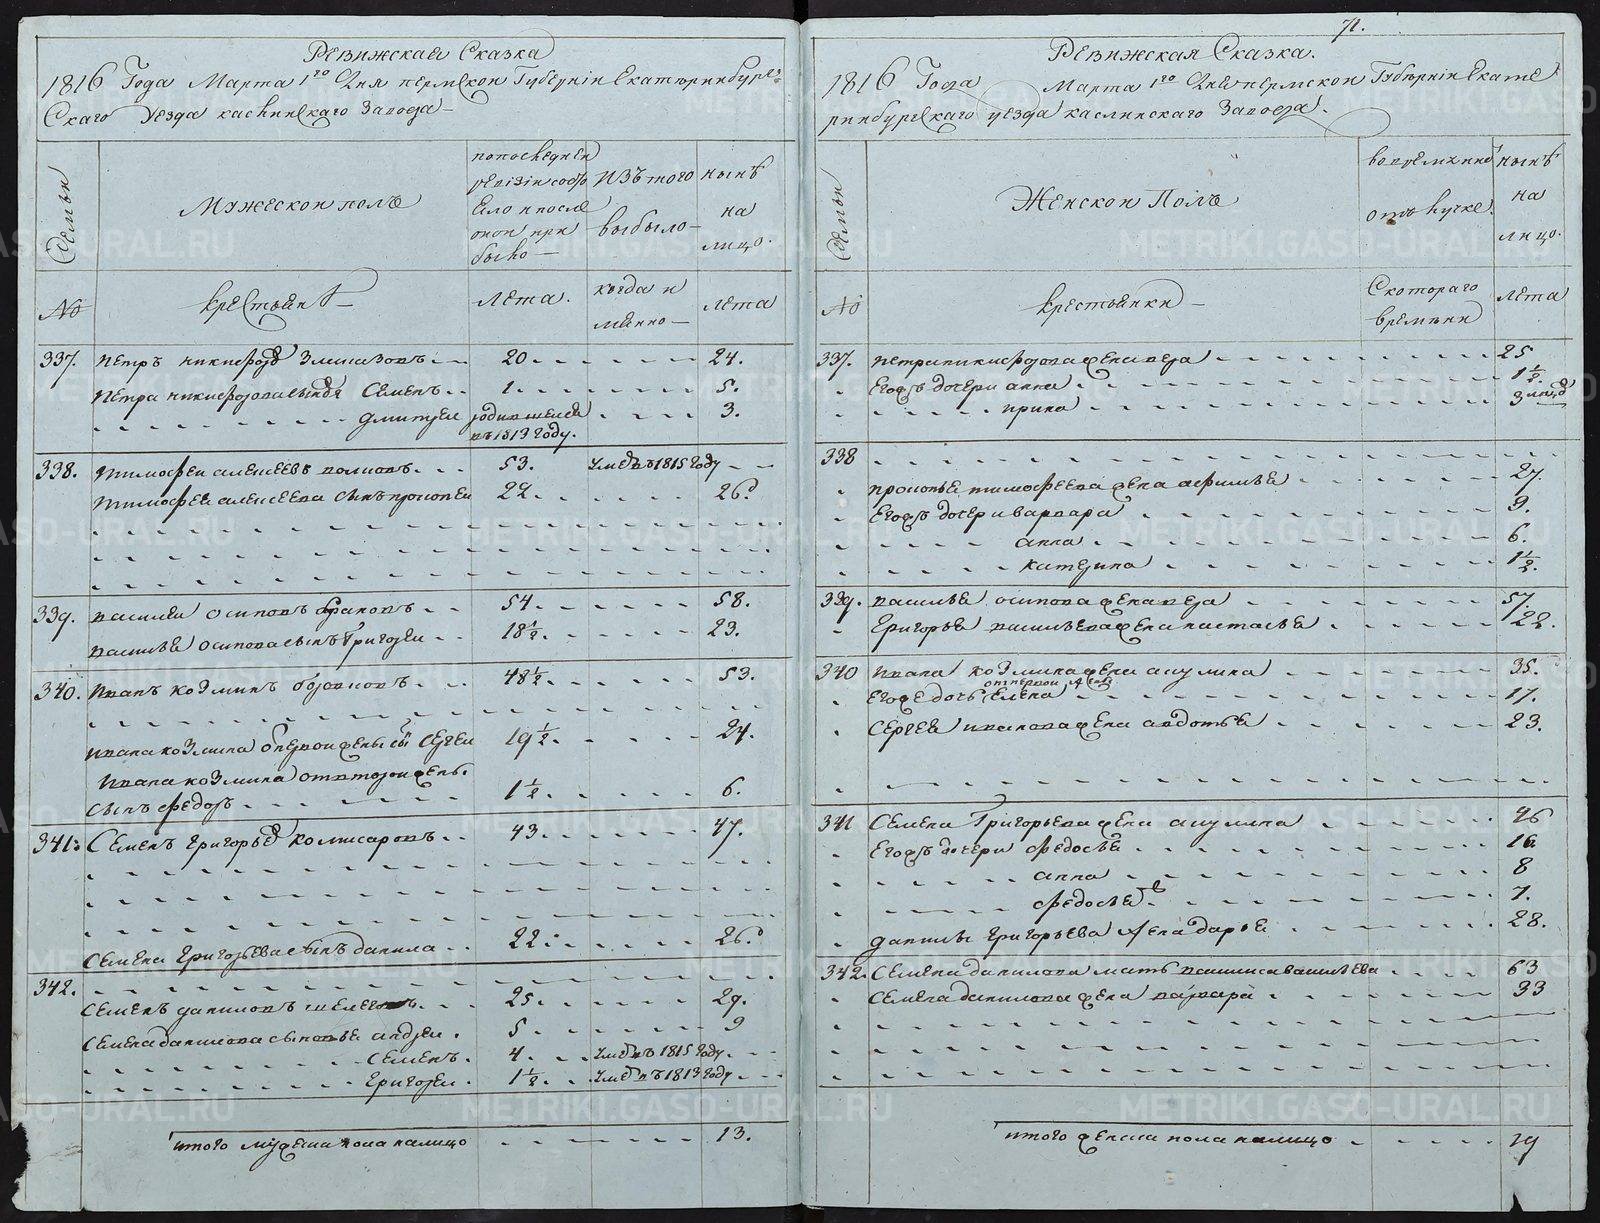 71.
Ревижская Сказка
1816 Года Марта 1го Дня пермской Губернiи Екатеринбург-
Скаго Уезда каслинскаго Завода
Семьи
Мужескои полъ
попоследней
ревiзiи состо
яло и после
онои при
было
Изъ того
выбыло
ныне
на
лицо.
No
крестьяне
лета.
когда и
менно
лета
337. петръ никифоровъ 20 24.
петра никифорова сынъ Семенъ 1. 5.
дмитреи родившеися 3.
въ 1813 Году.
338. тимофеи алексеевъ 53. Умевъ 1815 Году
тимофея алексеева сынъ прокопеи 22 26.
339. василеи осиповъ 54. 58.
василья осипова сынъ Григореи 18 1/2. 23.
340. иванъ козминъ 48 1/2 53.
ивана козмина Сергеи 19 1/2. 24.
ивана козмина отвторои жены
сынъ федоръ 1 1/2. 6.
341. Семенъ Григорьевъ комисаровъ 43 47.
Семена Григорьева сынъ данила 22. 26.
342.
Семенъ даниловъ 25. 29.
Семена данилова сыновья андреи. 5 9
Семенъ. 4. Умевъ 1815 Году
Григореи. 1 1/2 Умевъ 1813 Году
итого мужеска пола налицо 13.
Ревижская Сказка.
1816 Года Марта 1го Дня пермскои Губернiи Екате
ринбургскаго уезда каслинскаго Завода.
Семьи
Женскои Полъ
во временной
отлучке.
ныне
на
лицо.
No
крестьянки
Скотораго
времени
лета
337. петра никифорова жена 25
Егожъ дочери анна 1 1/2.
ирина 3
338
прокопья тимофеева жена 27.
Егожъ дочери варвара 9.
анна 6.
катерина 1 1/2.
339. василья осипова жена 57.
Григорья васильева жена настасья 22.
340 ивана козмина жена акулина 35.
от первои жены
Егоже дочь Елена 17.
Сергея иванова жена авдотья 23.
341 Семена Григорьева жена акулина 46
Егожъ дочери федосья 16
анна 8
федосья 7.
данилы Григорьева жена дарья 28.
342. Семена данилова мать васильева 63
Семена данилова жена варвара 33
итого женска пола налицо 19
METRIKI.GASO-URAL.RU